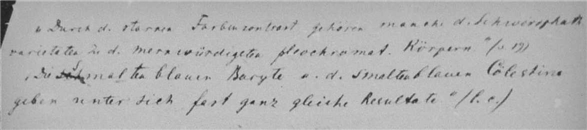 "Durch d. starken Farbencontrast gehören manche d. Schwerspath
varietäten zu d. merkwürdigsten pleochromat. Körpern" (p 19)
"Die schmaltenblauen Baryte u. d. smaltenblauen Cölestine
geben unter sich fast ganz gleiche Resultate" (l. c.)